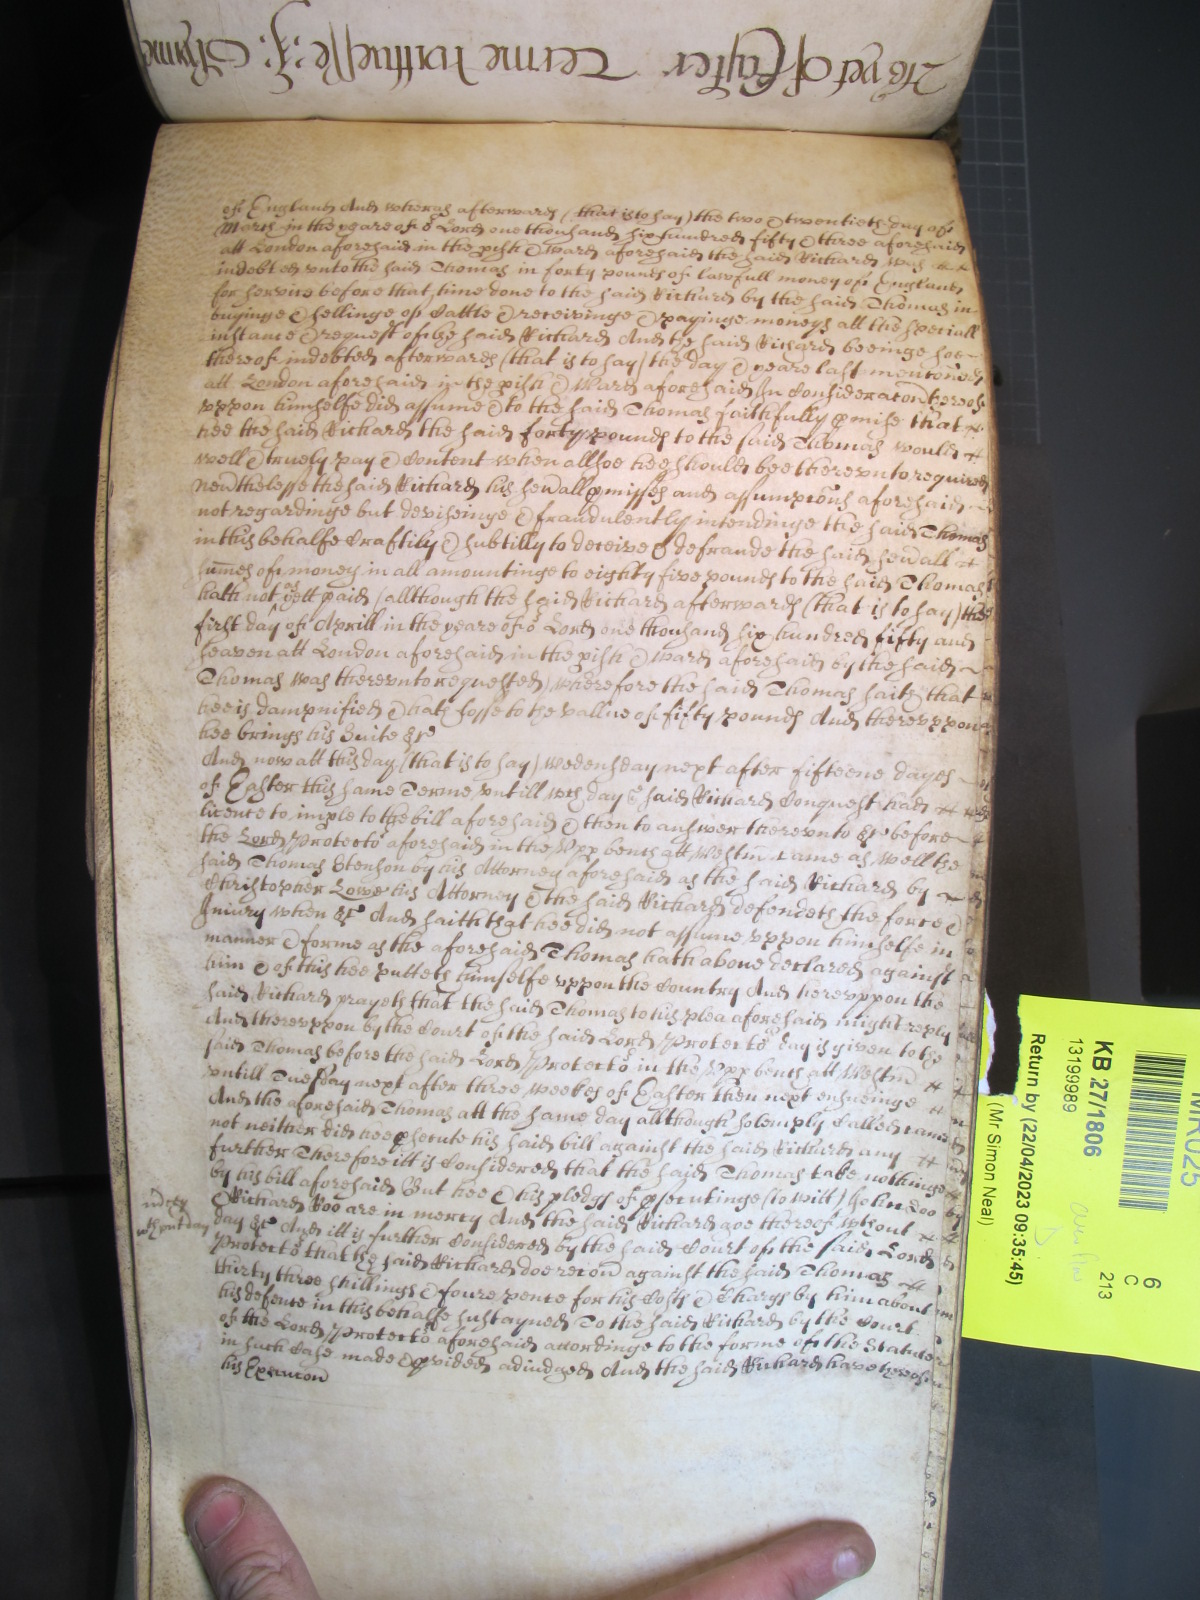 Yet of Easter Terme
of England And whereas afterwards (that is to say) the two & twentieth day of
March in the yeare of or Lord one thousand six hundred fifty & three aforesaid
att London aforesaid in the pish & ward aforesaid the said Richard was
indebted unto the said Thomas in forty pounds of lawfull money of England
for service before that time done to the said Richard by the said Thomas in
buyinge & sellinge of Cattle & receivinge & payinge moneys att the speciall
instance & request of the said Richard And the said Richard beeinge soe
thereof indebted afterwards (that is to say) the day & yeare last mentoned
att London aforesaid in the pish & Ward aforesaid In Consideracon thereof
uppon himselfe did assume & to the said Thomas faithfully pmise that
hee the said Richard the said forty pounds to the said Thomas would
well & truely pay & Content when allsoe hee should bee thereunto required
nevthelesse the said Richard his sevall pmisses and assumpcons aforesaid
not regardinge but deviseinge & fraudulently intendinge the said Thomas
in this behalfe Craftily & subtilly to deceive & defraude the said sevall
sumes of money in all amountinge to eighty five pounds to the said Thomas
hath not as yett paid (allthough the said Richard afterwards (that is to say) the
first day of Aprill in the yeare of or Lord one thousand six hundred fifty and
seaven att London aforesaid in the pish & ward aforesaid by the said
Thomas was thereunto requested) wherefore the said Thomas saith that
hee is dampnified & hath losse to the vallue of fifty pounds And thereuppon
hee brings his Suite &c
And now att this day (that is to say) Wedensday next after fifteene dayes
of Easter this same Terme untill wch day the said Richard Conquest had
licence to imple to the bill aforesaid & then to answer thereunto &c before
the Lord Protector aforesaid in the Upp bench att Westm came as well the
said Thomas Stenson by his Attorney aforesaid as the said Richard by
Christopher Lowe his Attorney & the said Richard defendeth the force &
Iniury when &c And saith that hee did not assume uppon himselfe in
manner & forme as the aforesaid Thomas hath above declared against
him & of this hee putteth himselfe uppon the Country And hereuppon the
said Richard prayeth that the said Thomas to his plea aforesaid might reply
And thereuppon by the Court of the said Lord Protector day is given to the
said Thomas before the said Lord Protector in the Upp bench att Westm
untill Tuesday next after three weekes of Easter then next ensueinge
And the aforesaid Thomas att the same day allthough solemply Called came
not neither did hee psecute his said bill against the said Richard any
further Therefore itt is Considered that the said Thomas take nothinge
by his bill aforesaid But hee & his pledgs of psecutinge (to witt) John Doo
& Richard Roo are in mercy And the said Richard goe thereof wthout
day &c And itt is further Considered by the said Court of the said Lord
Protector that the said Richard doe recou against the said Thomas
thirty three shillings & foure pence for his Costs & Chargs by him about
his defence in this behalfe sustayned To the said Richard by the Court
of the Lord Protector aforesaid accordinge to the forme of the Statute
in such Case made & pvided adiudged And the said Richard have thereof
his Execucon
mercy
wthout day
MR025
KB 27/1806
13199989
Return by (22/04/2023 09:35:45)
(Mr Simon Neal)
6
C
213